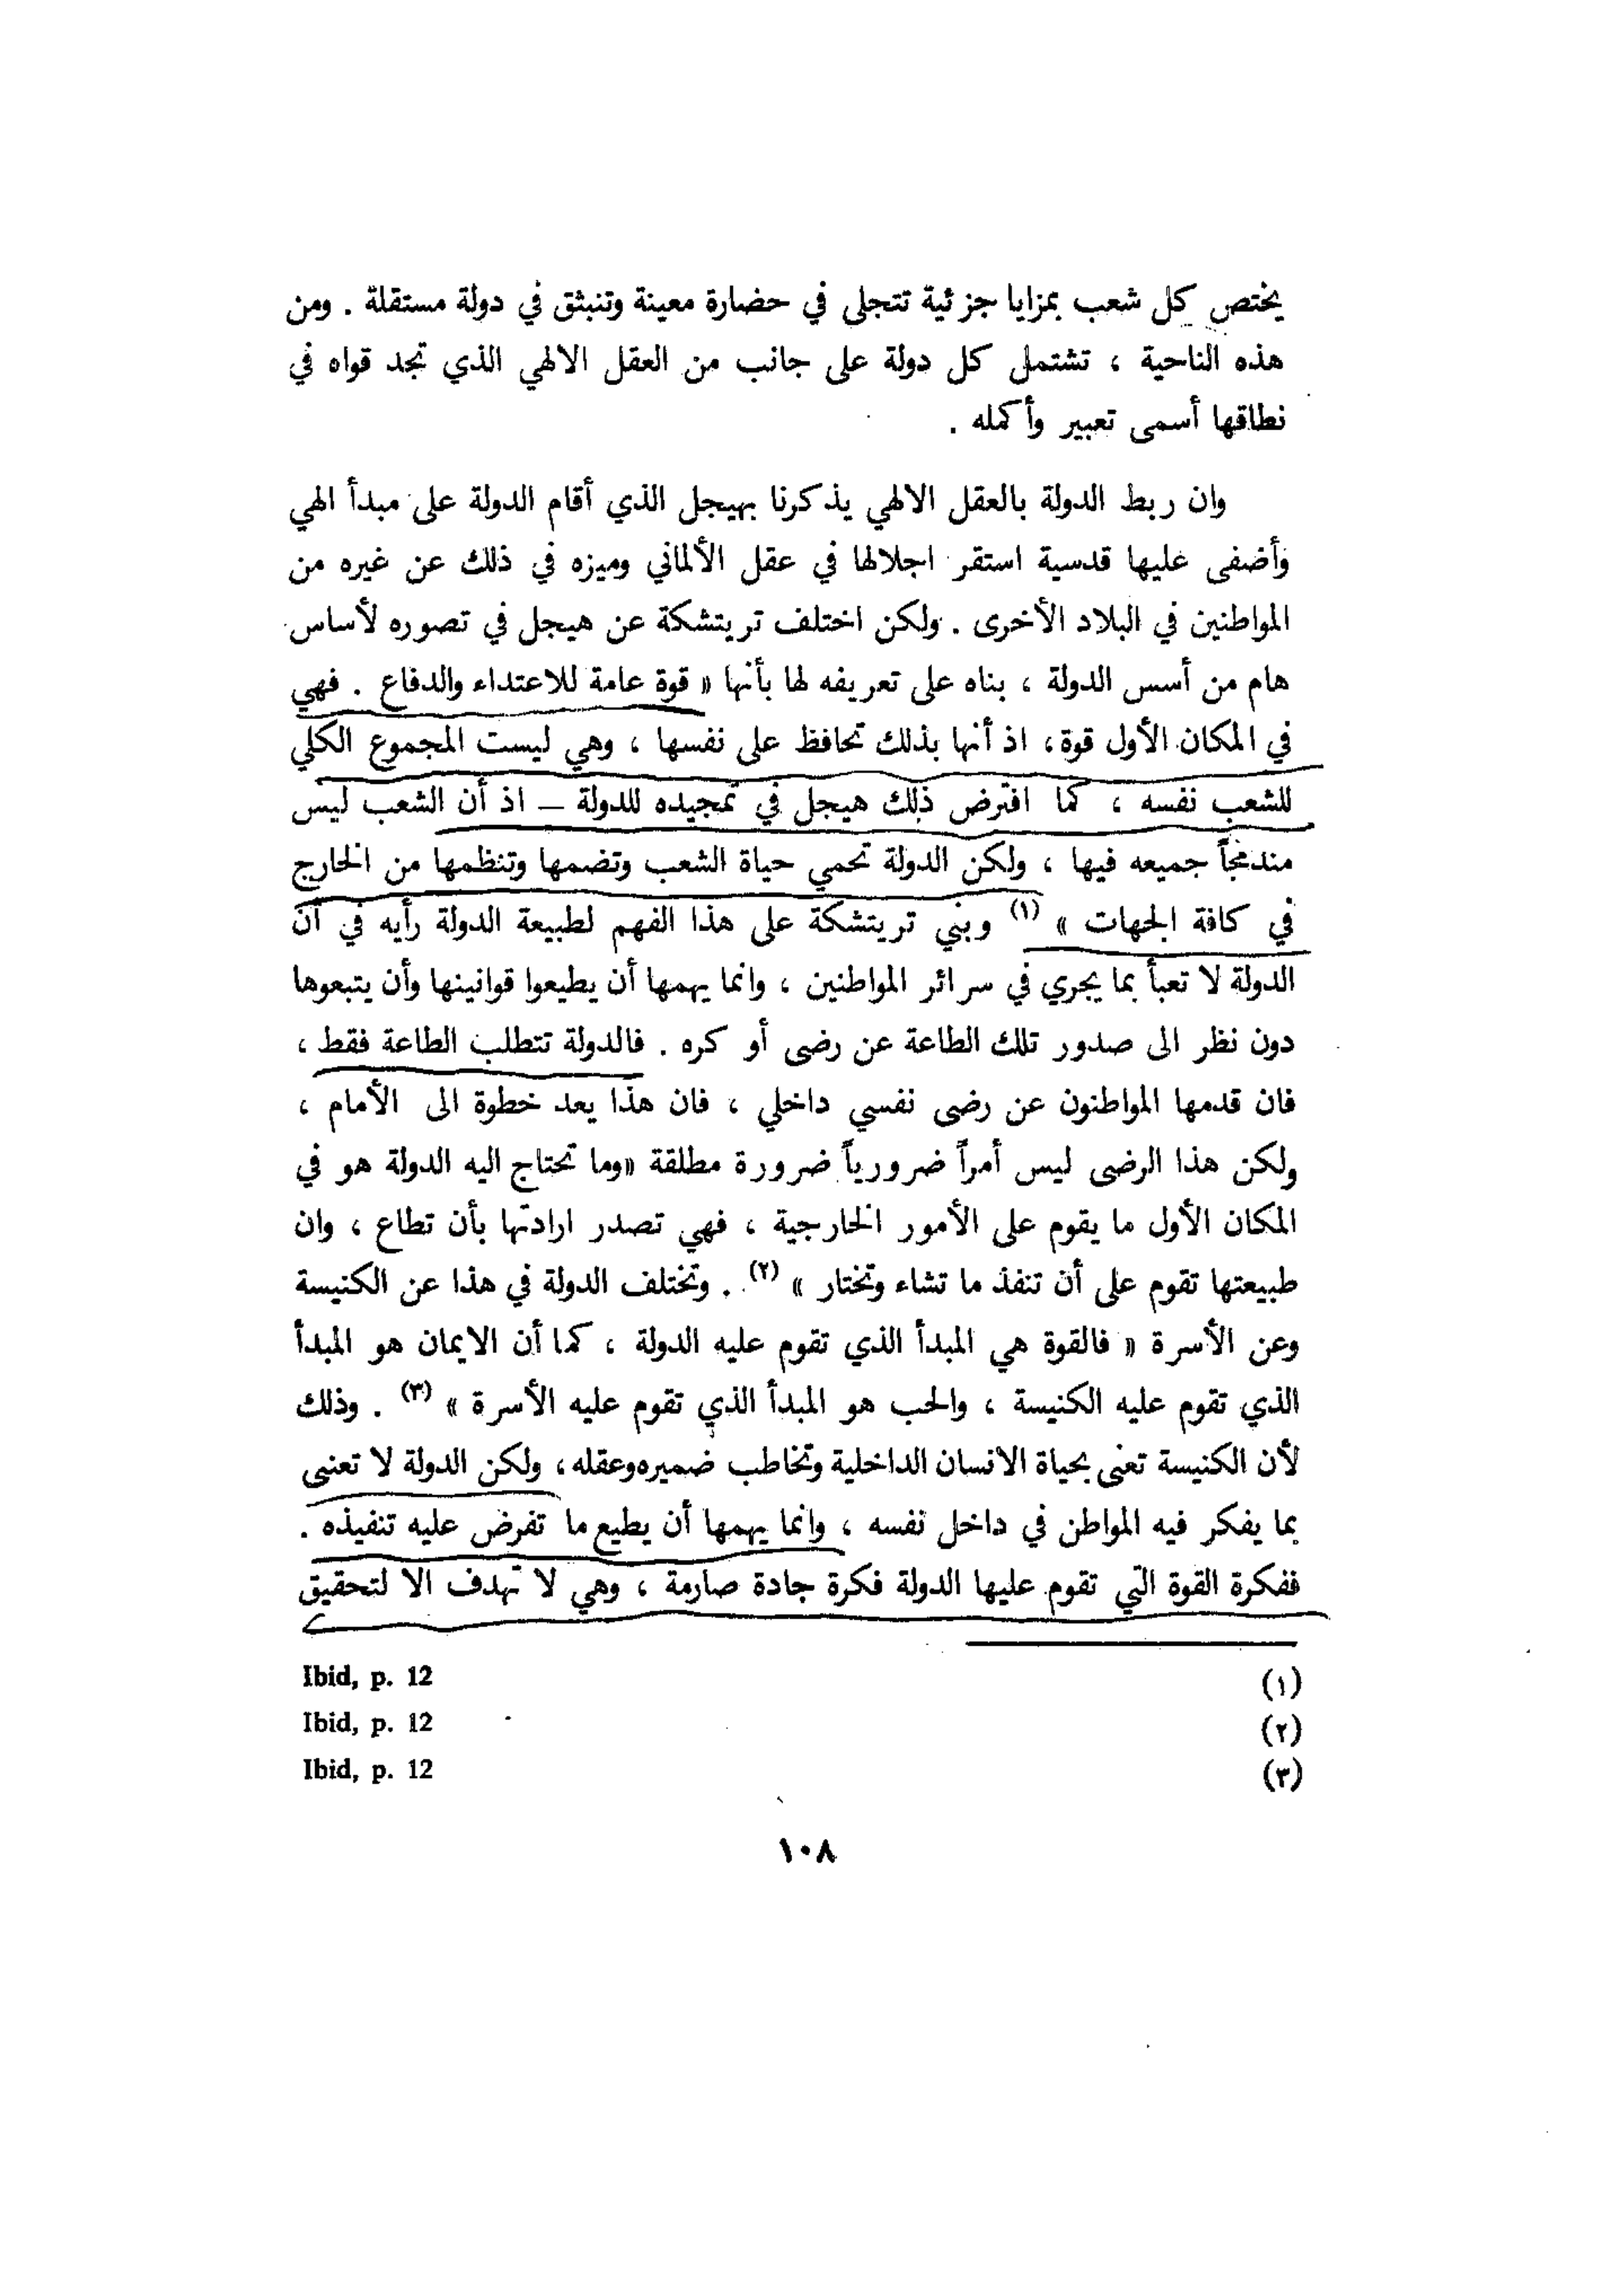 يختص كل شعب بمزايا جزئية تتجلى في حضارة معينة وتنبثق في دولة مستقلة . ومن
هذه الناحية ، تشتمل كل دولة على جانب من العقل الالهي الذي تجد قواه في
نطاقها أسمى تعبير وأكمله .
وان ربط الدولة بالعقل الالهي يذكرنا بهيجل الذي أقام الدولة على مبدأ الهي
وأضفى عليها قدسية استقر اجلالها في عقل الألماني وميزه في ذلك عن غيره من
المواطنين في البلاد الأخرى . ولكن اختلف تريتشكة عن هيجل في تصوره لأساس
هام من أسس الدولة ، بناه على تعريفه لها بأنها « قوة عامة للاعتداء والدفاع . فهي
في المكان الأول قوة ، اذ أنها بذلك تحافظ على نفسها ، وهي ليست المجموع الكلي
للشعب نفسه ، كما افترض ذلك هيجل في تمجيده للدولة – اذ أن الشعب ليس
مندمجاً جميعه فيها ، ولكن الدولة تحمي حياة الشعب وتضمها وتنظمها من الخارج
في كافة الجهات » (١) وبنى تريتشكة على هذا الفهم لطبيعة الدولة رأيه في أن
الدولة لا تعبأ بما يجري في سرائر المواطنين ، وانما يهمها أن يطيعوا قوانينها وأن يتبعوها
دون نظر الى صدور تلك الطاعة عن رضى أو كره . فالدولة تتطلب الطاعة فقط ،
فان قدمها المواطنون عن رضى نفسي داخلي ، فان هذا يعد خطوة الى الأمام ،
ولكن هذا الرضى ليس أمراً ضرورياً ضرورة مطلقة «وما تحتاج اليه الدولة هو في
المكان الأول ما يقوم على الأمور الخارجية ، فهي تصدر ارادتها بأن تطاع ، وان
طبيعتها تقوم على أن تنفذ ما تشاء وتختار » (٢) . وتختلف الدولة في هذا عن الكنيسة
وعن الأسرة « فالقوة هي المبدأ الذي تقوم عليه الدولة ، كما أن الايمان هو المبدأ
الذي تقوم عليه الكنيسة ، والحب هو المبدأ الذي تقوم عليه الأسرة » (٣) . وذلك
لأن الكنيسة تعنى بحياة الانسان الداخلية وتخاطب ضميره وعقله ، ولكن الدولة لا تعنى
بما يفكر فيه المواطن في داخل نفسه ، وانما يهمها أن يطيع ما تفرض عليه تنفيذه .
ففكرة القوة التي تقوم عليها الدولة فكرة جادة صارمة ، وهي لا تهدف الا لتحقيق
(١) Ibid, p. 12
(٢) Ibid, p. 12
(٣) Ibid, p. 12
١٠٨